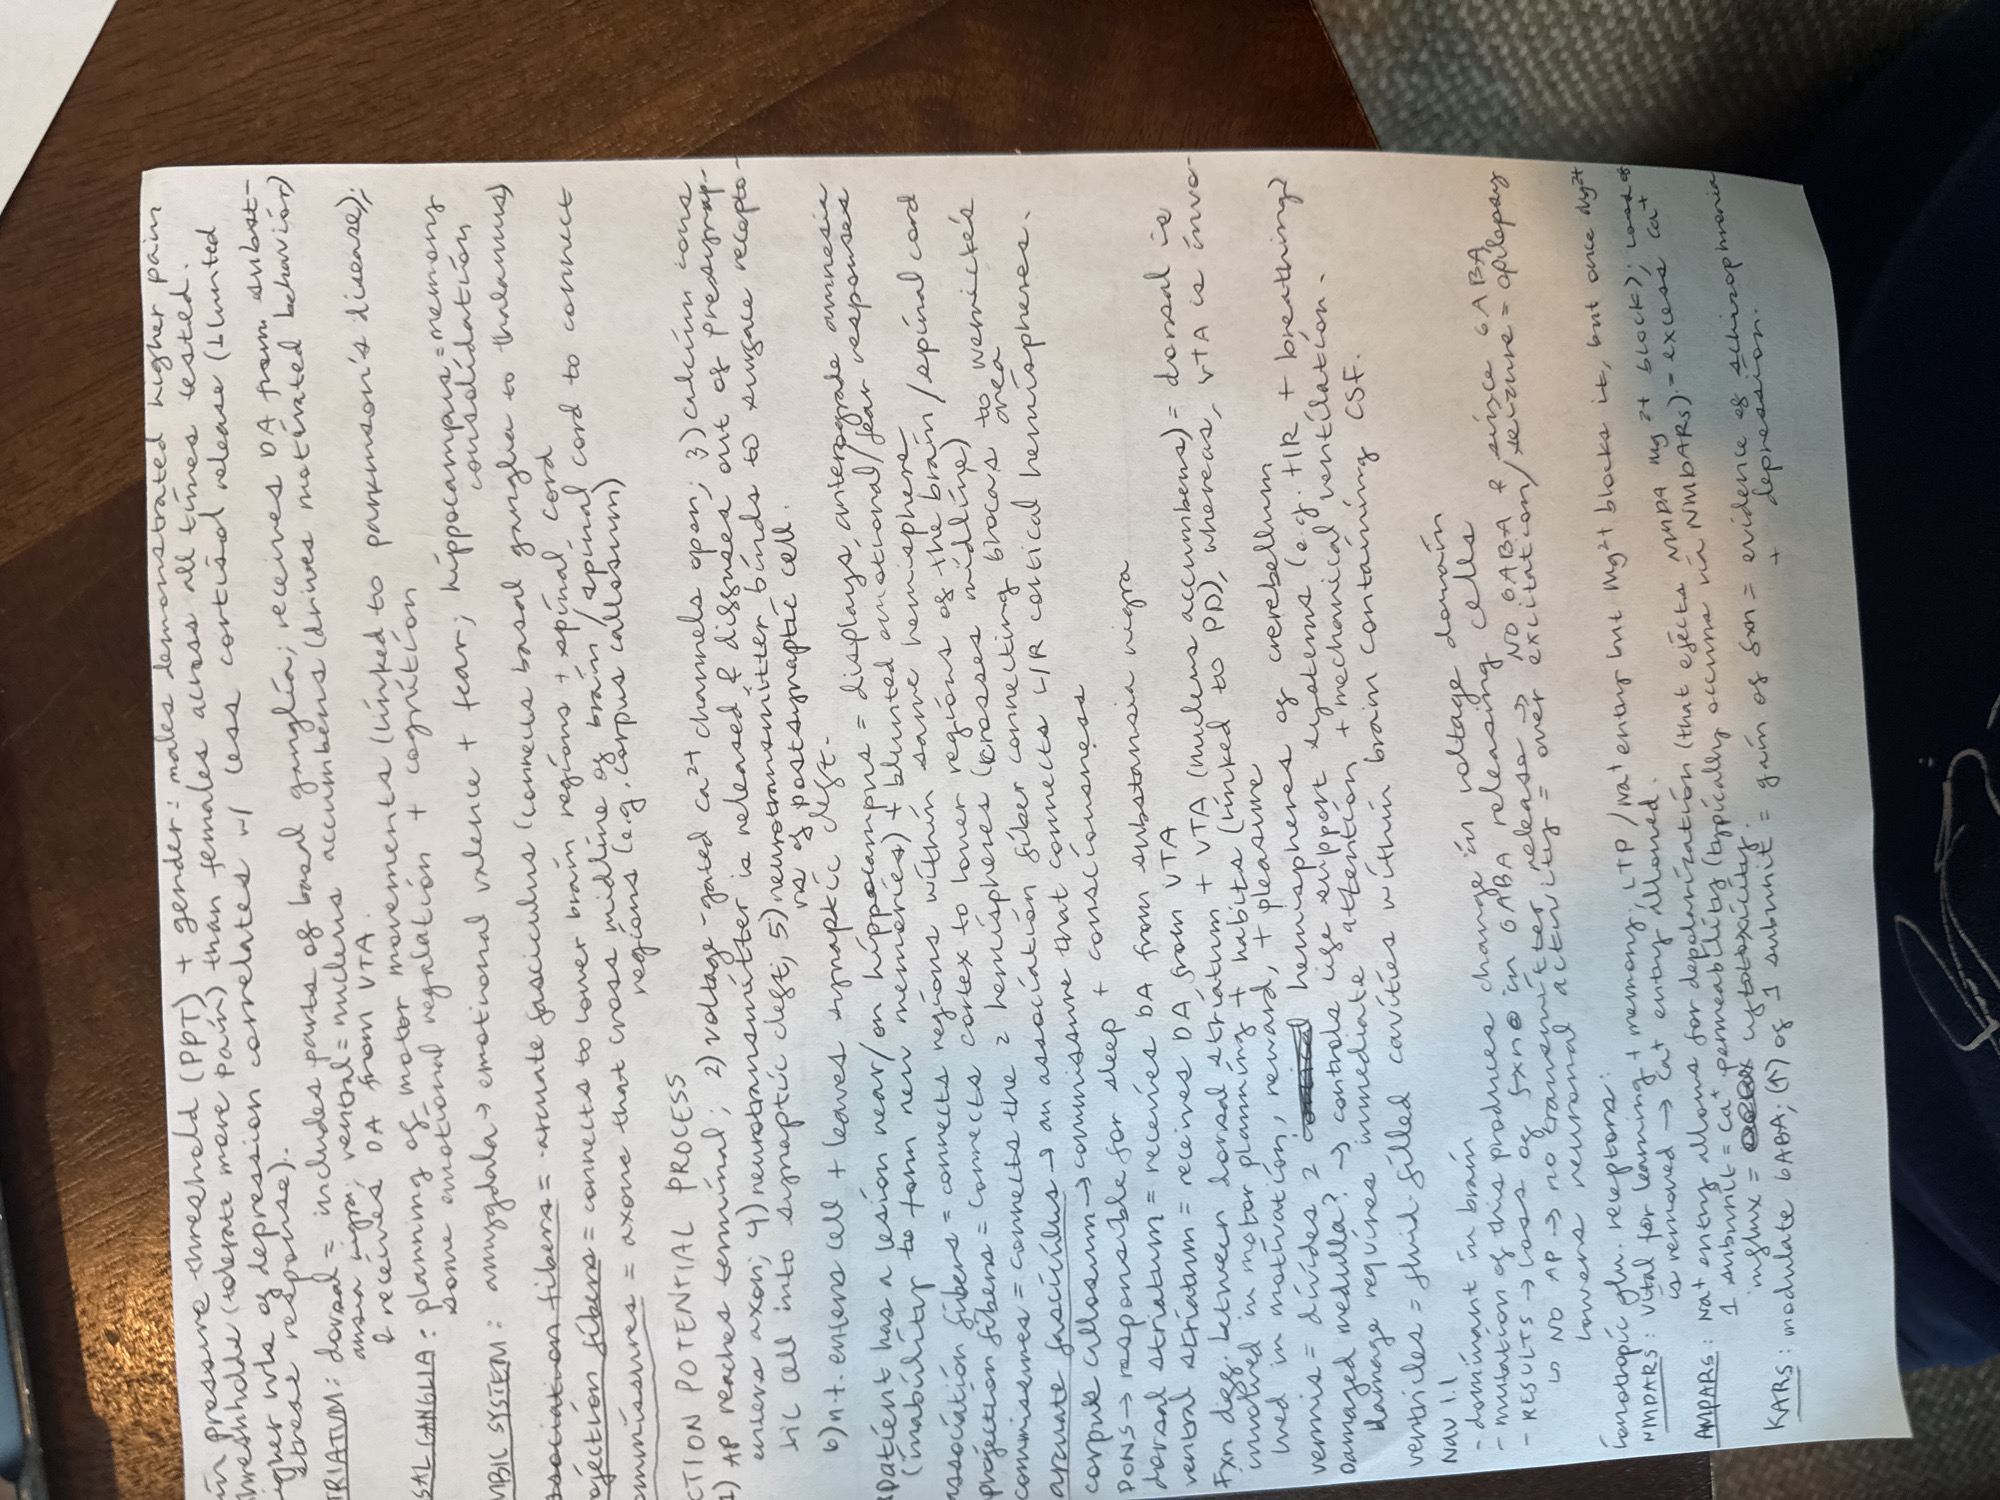 in pressure threshold (PPT) + gender: males demonstrated higher pain
threshholds (tolerate more pain) than females across all times tested.
igher risk of depression correlates w/ less cortisol release (blunted
stress response).
TRIATUM: dorsal = includes parts of basal ganglia; receives DA from subst-
ansia nigra; ventral = nucleus accumbens (drives motivated behavior)
& receives DA from VTA.
SAL GANGLIA: planning of motor movements (linked to parkinson's disease);
some emotional regulation + cognition
MBIC SYSTEM: amygdala → emotional valence + fear; hippocampus = memory
consolidation
ssociation fibers = arcuate fasciculus (connects basal ganglia to thalamus)
ojection fibers = connects to lower brain regions + spinal cord
ommissures = axons that cross midline of brain/spinal cord to connect
regions (e.g. corpus callosum)
CTION POTENTIAL PROCESS
1) AP reaches terminal; 2) voltage-gated ca2+ channels open; 3) calcium ions
enters axon; 4) neurotransmitter is released & diffuses out of presynap-
tic cell into synaptic cleft; 5) neurotransmitter binds to surface recepto-
rs of postsynaptic cell.
6) n.t. enters cell + leaves synaptic cleft.
patient has a lesion near/on hippocampus = displays anterograde amnesia
(inability to form new memories) + blunted emotional/fear responses
association fibers = connects regions within same hemisphere
projection fibers = connects cortex to lower regions of the brain/spinal cord
commissures = connects the 2 hemispheres (crosses midline)
arcuate fasciculus → an association fiber connecting brocas to wernicke's
area
corpus callosum → commissure that connects L/R cortical hemispheres.
PONS → responsible for sleep + consciousness
dorsal striatum = receives DA from substansia nigra
ventral striatum = receives DA from VTA
Fxn diff. between dorsal striatum + VTA (nucleus accumbens) = dorsal is
involved in motor planning + habits (linked to PD), whereas, VTA is invo-
lved in motivation, reward, + pleasure
vermis = divides 2 hemispheres of cerebellum
Damaged medulla? → controls life support systems (e.g. HR + breathing)
damage requires immediate attention + mechanical ventilation.
ventricles = fluid-filled cavities within brain containing CSF.
NaV 1.1
- dominant in brain
- mutation of this produces change in voltage domain
- RESULTS → loss of fxn in GABA releasing cells
↳ NO AP → no transmitter release → NO GABA & since GABA
lowers neuronal activity = over excitation/seizure = epilepsy
ionotropic glu. receptors:
NMDARS: vital for learning + memory, LTP/Na+ entry but Mg2+ blocks it, but once Mg2+
is removed → Ca+ entry allowed.
AMPARS: Na+ entry allows for depolarization (that ejects NMDA Mg2+ block);
1 subunit = Ca+ permeability (typically occurs in NMDARs) = excess Ca+
influx = cytotoxicity.
KARS: modulate GABA; (↑) of 1 subunit = gain of fxn = evidence of schizophrenia
+ depression.